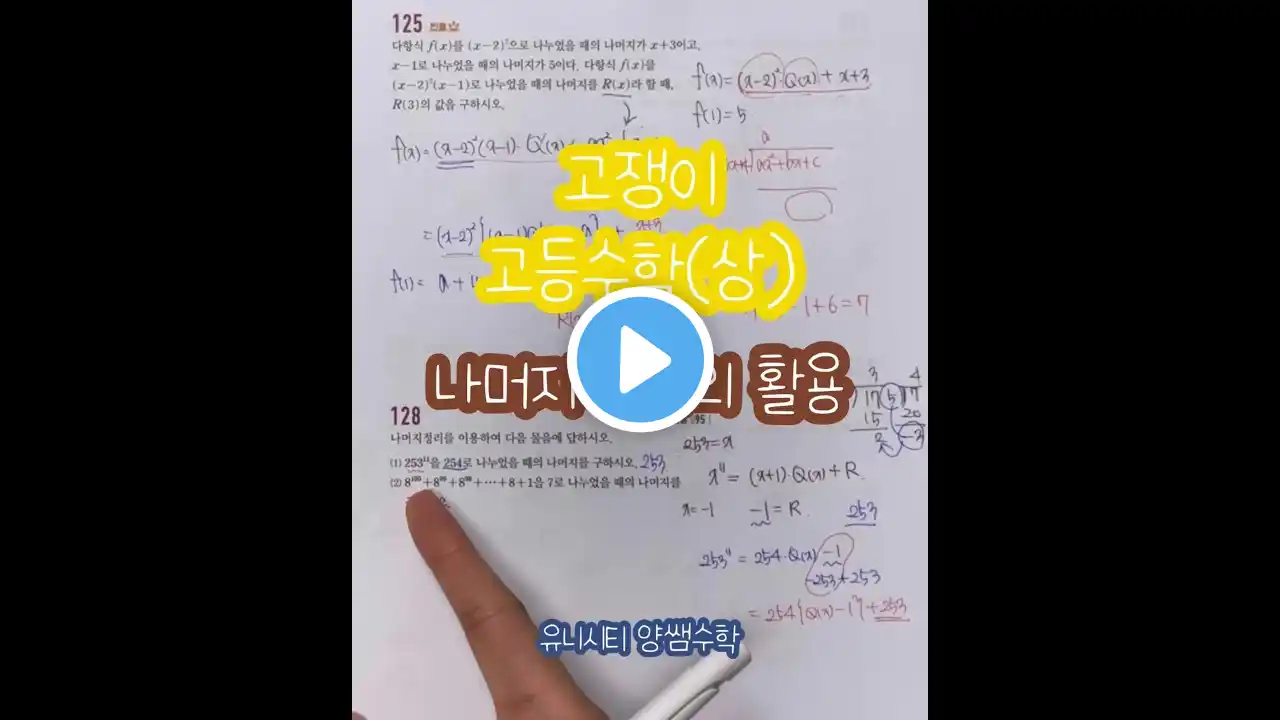 125 빈출
다항식 f(x)를 (x-2)²으로 나누었을 때의 나머지가 x+3이고,
x-1로 나누었을 때의 나머지가 5이다. 다항식 f(x)를
(x-2)²(x-1)로 나누었을 때의 나머지를 R(x)라 할 때,
R(3)의 값을 구하시오.
f(x)=(x-2)²Q(x)+x+3
f(1)=5
f(x)=(x-2)²(x-1)·Q(x)
a
ax²+bx+c
고쟁이
=(x-2)²
고등수학(상)
f(1)= a+
-1+6=7
나머지 의 활용
3 4
17 5 17
15 20
2 -3
128
나머지정리를 이용하여 다음 물음에 답하시오.
253=x
(1) 253¹¹을 254로 나누었을 때의 나머지를 구하시오. 253
x¹¹=(x+1)·Q(x)+R
(2) 8¹⁰⁰+8⁹⁹+8⁹⁸+⋯+8+1을 7로 나누었을 때의 나머지를
x=-1 -1=R. 253
253¹¹=254·Q(x)-1
-253+253
=254{Q(x)-1}+253
유니시티 양쌤수학